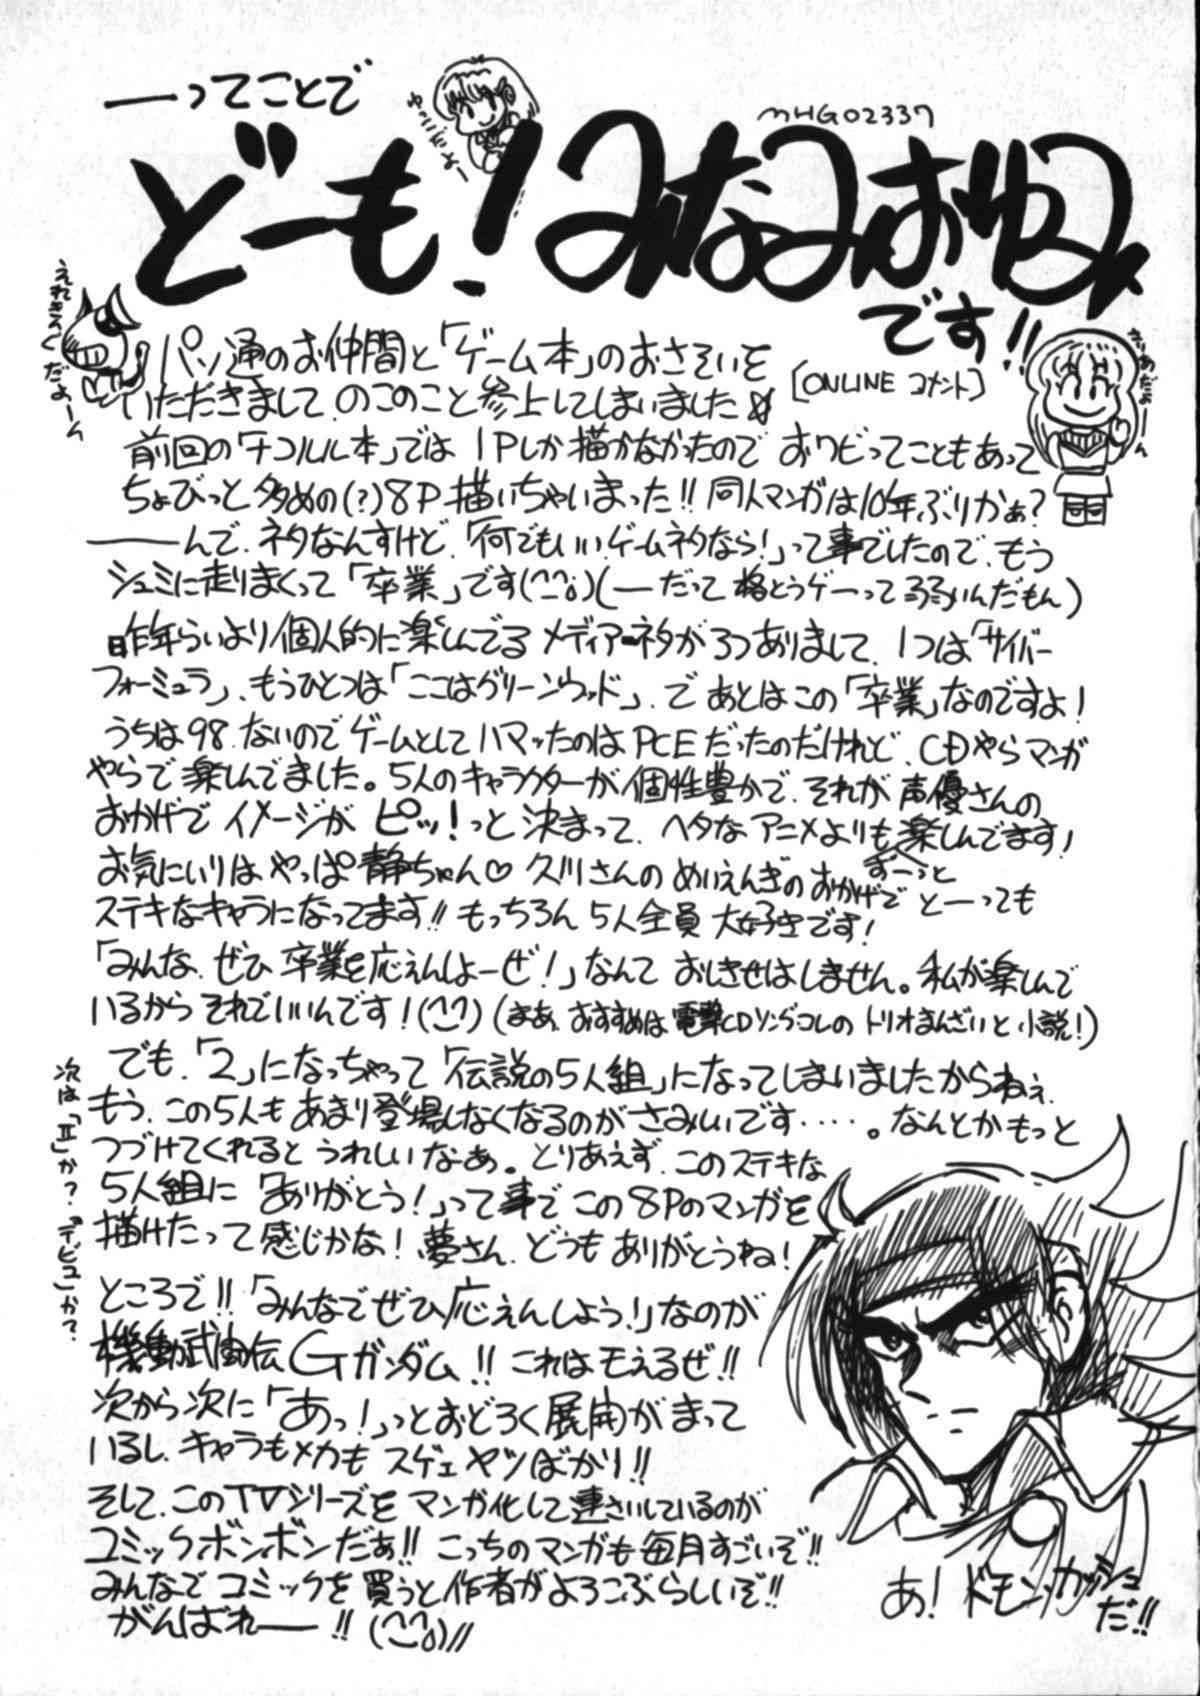 ——ってことで
ゆうこだよー
MHG02337
どーも!みなみおゆみ
です!!
えれきんぐだよーん
きりあだよーん
パソ通のお仲間と「ゲーム本」のおさそいを
[ONLINE コメント]
いただきまして、のこのこと参上してしまいました
前回の「ナコルル本」では 1Pしか描かなかったので おワビってこともあって
ちょびっと多めの(?)8P描いちゃいまった!!同人マンガは10年ぶりかぁ?
———んで、ネタなんすけど、「何でもいい、ゲームネタなら!」って事でしたので、もう
シュミに走りまくって「卒業」です(^^;)(—だって格とうゲーって弱いんだもん)
昨年らいより個人的に楽しんでるメディアーネタが3つありまして、1つは「サイバー
フォーミュラ」、もうひとつは「ここはグリーンウッド」、であとはこの「卒業」なのですよ!
うちは98、ないのでゲームとしてハマッたのはPCEだったのだけれど、CDやらマンガ
やらで楽しんでました。5人のキャラクターが個性豊かで、それが声優さんの
おかげでイメージがピッ!っと決まって、ヘタなアニメよりも楽しんでます!
お気にいりはやっぱ静ちゃん♡久川さんのめいえんぎのおかげでずーっと とーっても
ステキなキャラになってます!!もっちろん5人全員大好きです!
「みんな、ぜひ卒業を応えんしよーぜ!」なんておしきせはしません。私が楽しんで
いるからそれでいいんです!(^^)(まあ、おすすめは電撃CDソングコレのトリオまんざいと小説!)
でも、「2」になっちゃって「伝説の5人組」になってしまいましたからねぇ、
もう、この5人もあまり登場しなくなるのがさみしいです‥‥。なんとかもっと
つづけてくれるとうれしいなぁ。とりあえず、このステキな
5人組に「ありがとう!」って事でこの8Pのマンガを
描けたって感じかな!夢さん、どうもありがとうね!
次は「Ⅱ」か?「デビュ」か?
ところで!!「みんなでぜひ応えんしよう!」なのが
機動武闘伝Gガンダム!!これはモえるぜ!!
次から次に「あっ!」っとおどろく展開がまって
いるし、キャラもメカもスゲェヤツばかり!!
そして、このTVシリーズをマンガ化して連さいしているのが
コミックボンボンだぁ!!こっちのマンガも毎月すごいぞ!!
みんなでコミックを買うと作者がよろこぶらしいぞ!!
がんばれ——!!(^^;)//
あ!ドモン・カッシュ
だ!!